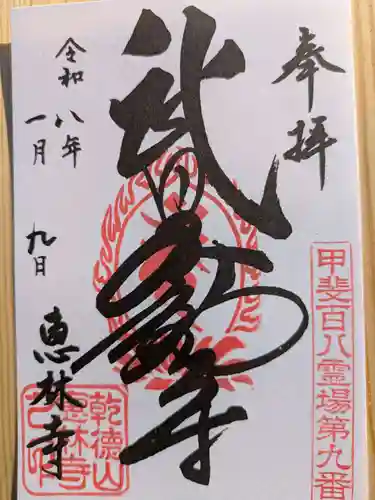 奉拝
甲斐百八霊場第九番
武田不動尊
乾徳山
恵林寺
之印
令和八年
一月九日
恵林寺